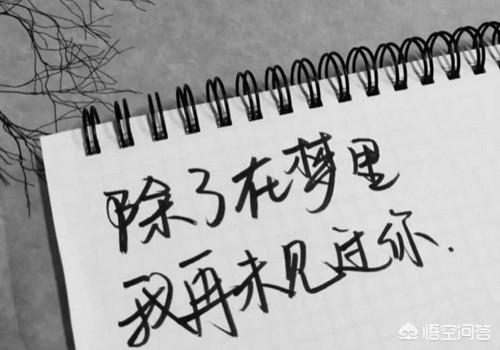 除了在梦里
我再未见过你.
悟空问答